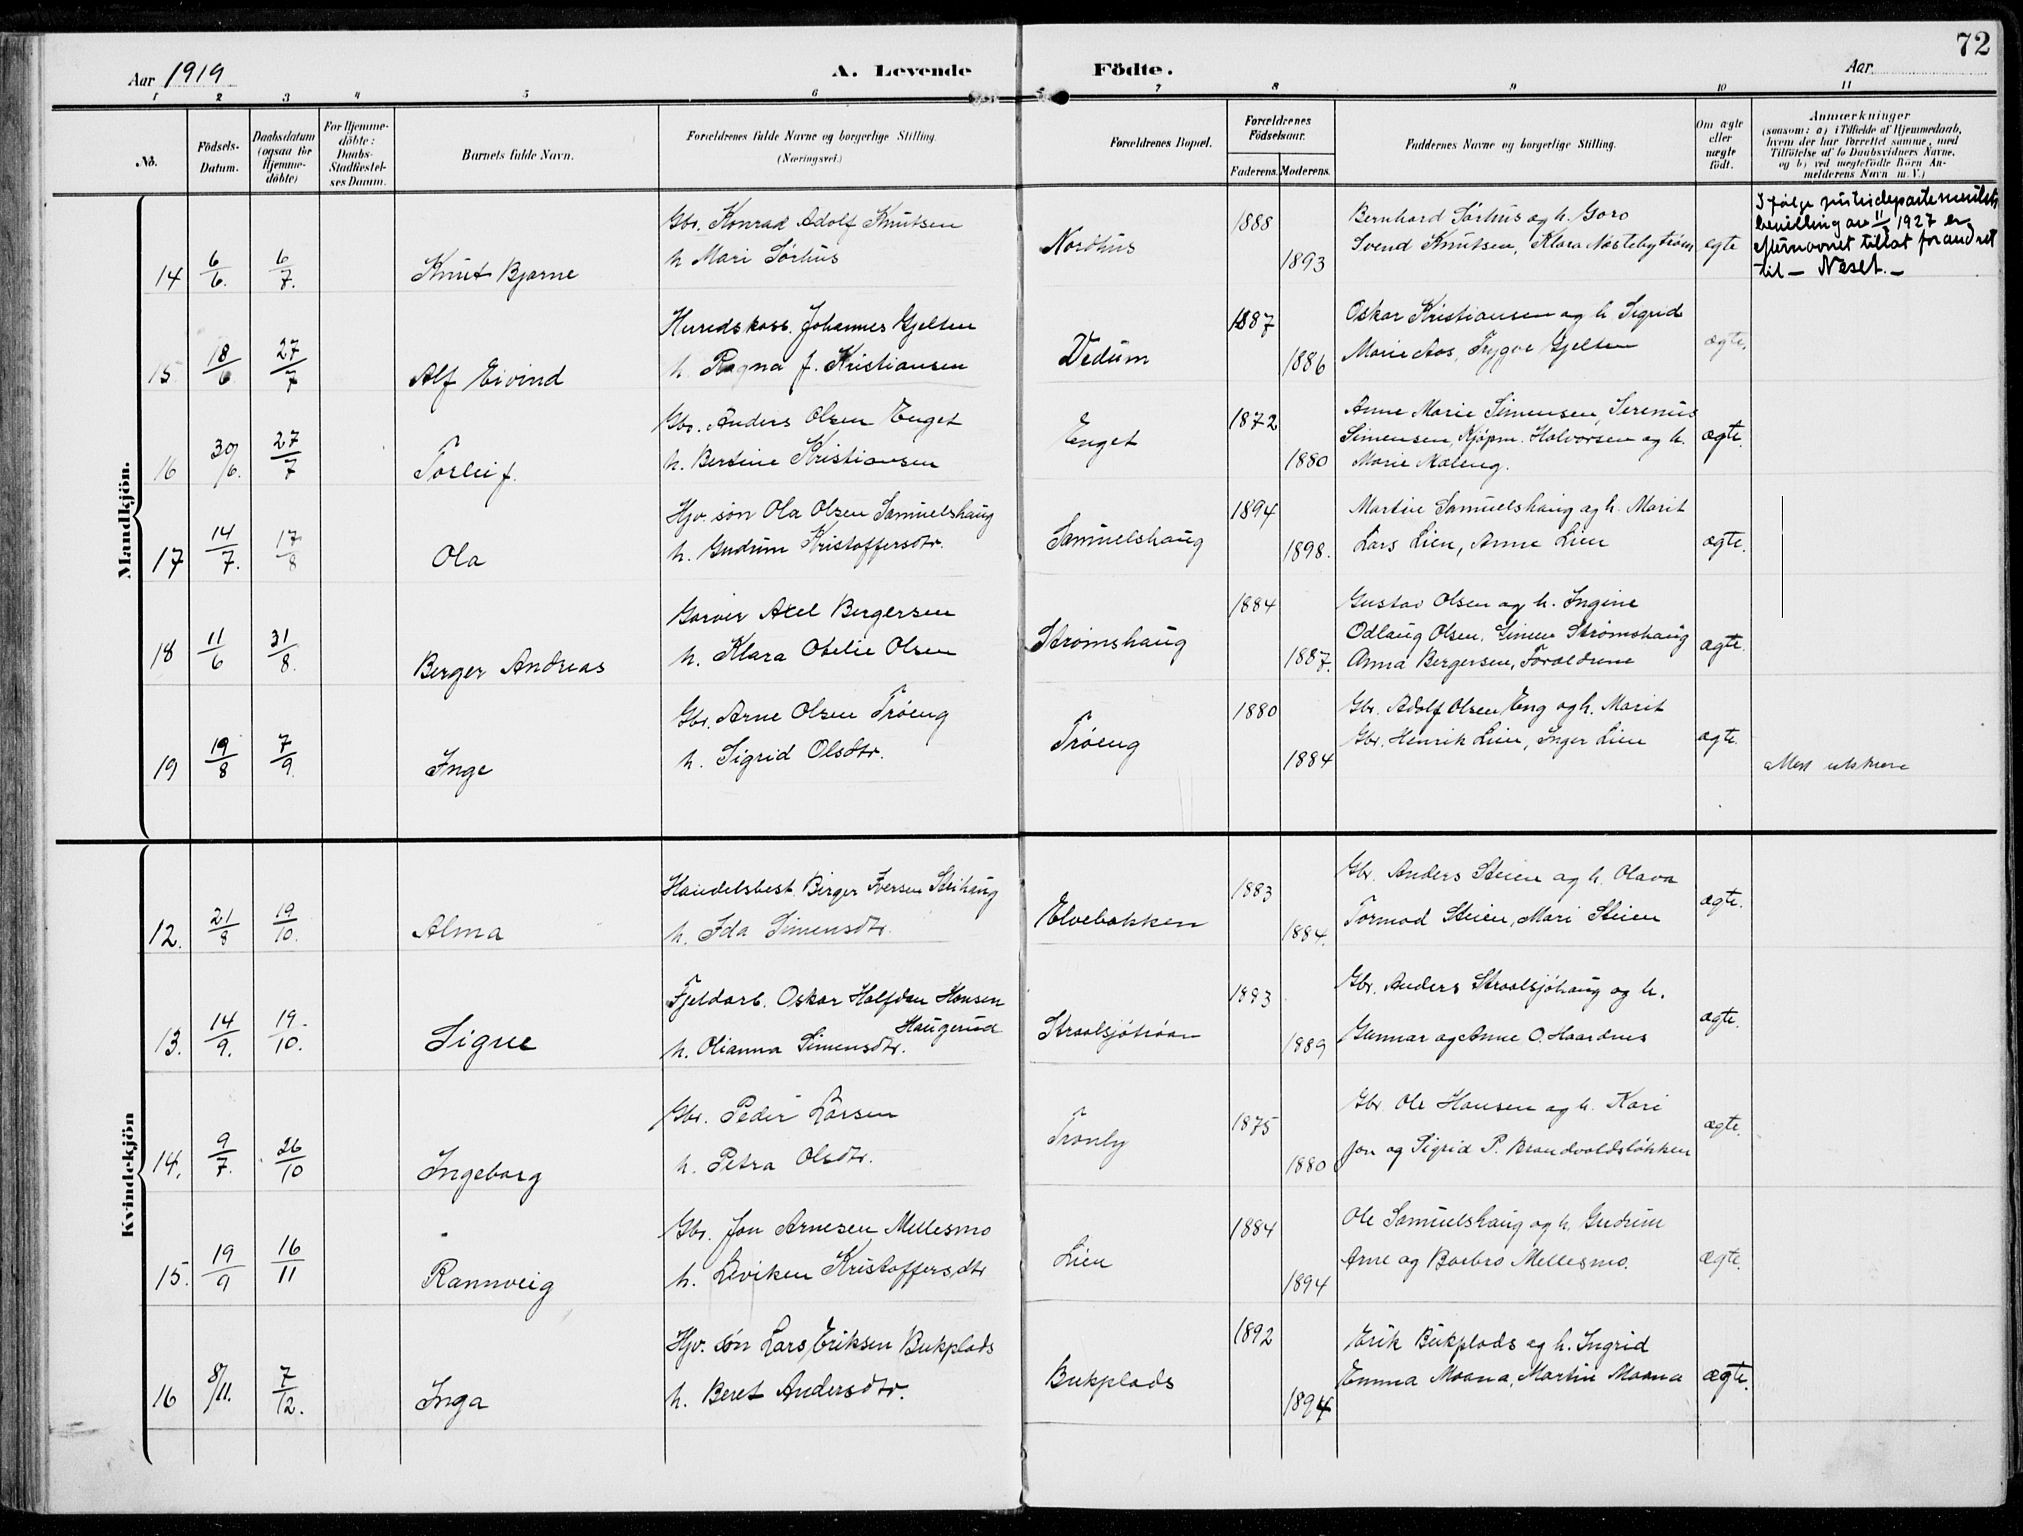 72
Aar 1919
A. Levende Födte.
Aar
1 2 3 4 5 6 7 8 9 10 11
No.
Födsels-Datum.
Daabsdatum (ogsaa for Hjemme-döbte)
For Hjemme-döbte: Daabs-Stadfæstel-ses Datum.
Barnets fulde Navn.
Forældrenes fulde Navne og borgerlige Stilling. (Næringsvei.)
Forældrenes Bopæl.
Forældrenes Födselsaar.
Faderens. Moderens.
Faddernes Navne og borgerlige Stilling.
Om ægte eller uægte født.
Anmærkninger
(saasom: a) i Tilfælde af Hjemmedaab,
hvem der har forrettet samme, med
Tilföielse af to Daabsvidners Navne,
og b) ved uægtefödte Börn An-
melderens Navn m. V.)
Mandkjön.
14 6/6. 6/7. Knut Bjarne
Gbr. Konrad Adolf Knutsen
h Mari Sørhus
Nordhus
1888
1893
Bernhard Sørhus og h. Goro
Svend Knutsen, Klara Nästebytrøen
egte
I følge justisdepartementets
bevilling av 11/ 1927 er
efternavnet tillat forandret
til – Neset. –
15 18/6 27/7 Alf Eivind
Herredskass. Johannes Gjelten
h. Ragna f. Kristiansen
Vedum
1887
1886
Oskar Kristiansen og h. Sigrid
Marie Aas, Trygve Gjelten
ægte.
16 30/6. 27/7 Torleif.
Gbr. Anders Olsen Enget
h. Bertine Kristiansen
Enget
1872
1880
Anne Marie Simensen, Serenius
Simensen, Kjøpm. Halvorsen og h.
Marie Mæleng.
ægte.
17 14/7. 17/8 Ola
Hjv. søn Ola Olsen Samuelshaug
h. Gudrun Kristoffersdtr.
Samuelshaug
1894
1898.
Martin Samuelshaug og h. Marit
Lars Lien, Anne Lien
ægte.
18 11/6 31/8. Berger Andreas
Garver Axel Bergersen
h. Klara Otelie Olsen
Strømshaug
1884
1887.
Gustav Olsen og h. Ingine
Odlaug Olsen, Simen Strømshaug
Anna Bergersen, Forældrene
ægte.
19 19/8 7/9. Inge
Gbr. Arne Olsen Trøeng
h. Sigrid Olsdtr.
Trøeng
1880
1884
Gbr. Adolf Olsen Eng og h. Marit
Gbr. Henrik Lien, Inger Lien
ægte.
Kvindekjön
12. 21/8 19/10. Alma
Handelsbest. Birger Iversen Steihaug
h. Ida Simensdtr.
Elvebakken
1883
1884.
Gbr. Anders Steien og h. Olava
Tormod Steien, Mari Steien
ægte.
13. 14/9. 19/10. Signe
Fjeldarb. Oskar Halfdan Hansen
Haugerud
h. Olianna Simensdtr.
Straalsjøtrøen
1893
1889
Gbr. Anders Straalsjøhaug og h.
Gunnar og Anne O. Haardnes
ægte.
14. 9/7. 26/10 Ingeborg
Gbr. Peder Larsen
h. Petra Olsdtr.
Tronby
1875
1880
Gbr Ole Hansen og h. Kari
Jon og Sigrid P. Brandvoldsløkken
ægte.
15. 19/9 16/11 Rannveig
Gbr. Jon Arnesen Mellesmo
h. Leviken Kristoffersdtr
Lien
1884
1894
Ole Samuelshaug og h. Gudrun
Arne og Barbro Mellesmo.
ægte.
16 8/11. 7/12. Inga
Hjv. søn Lars Eriksen Bukplads
h. Beret Andersdtr.
Bukplads
1892
1894
Erik Bukplads og h. Ingrid
Emma Moana, Martin Moana
ægte.